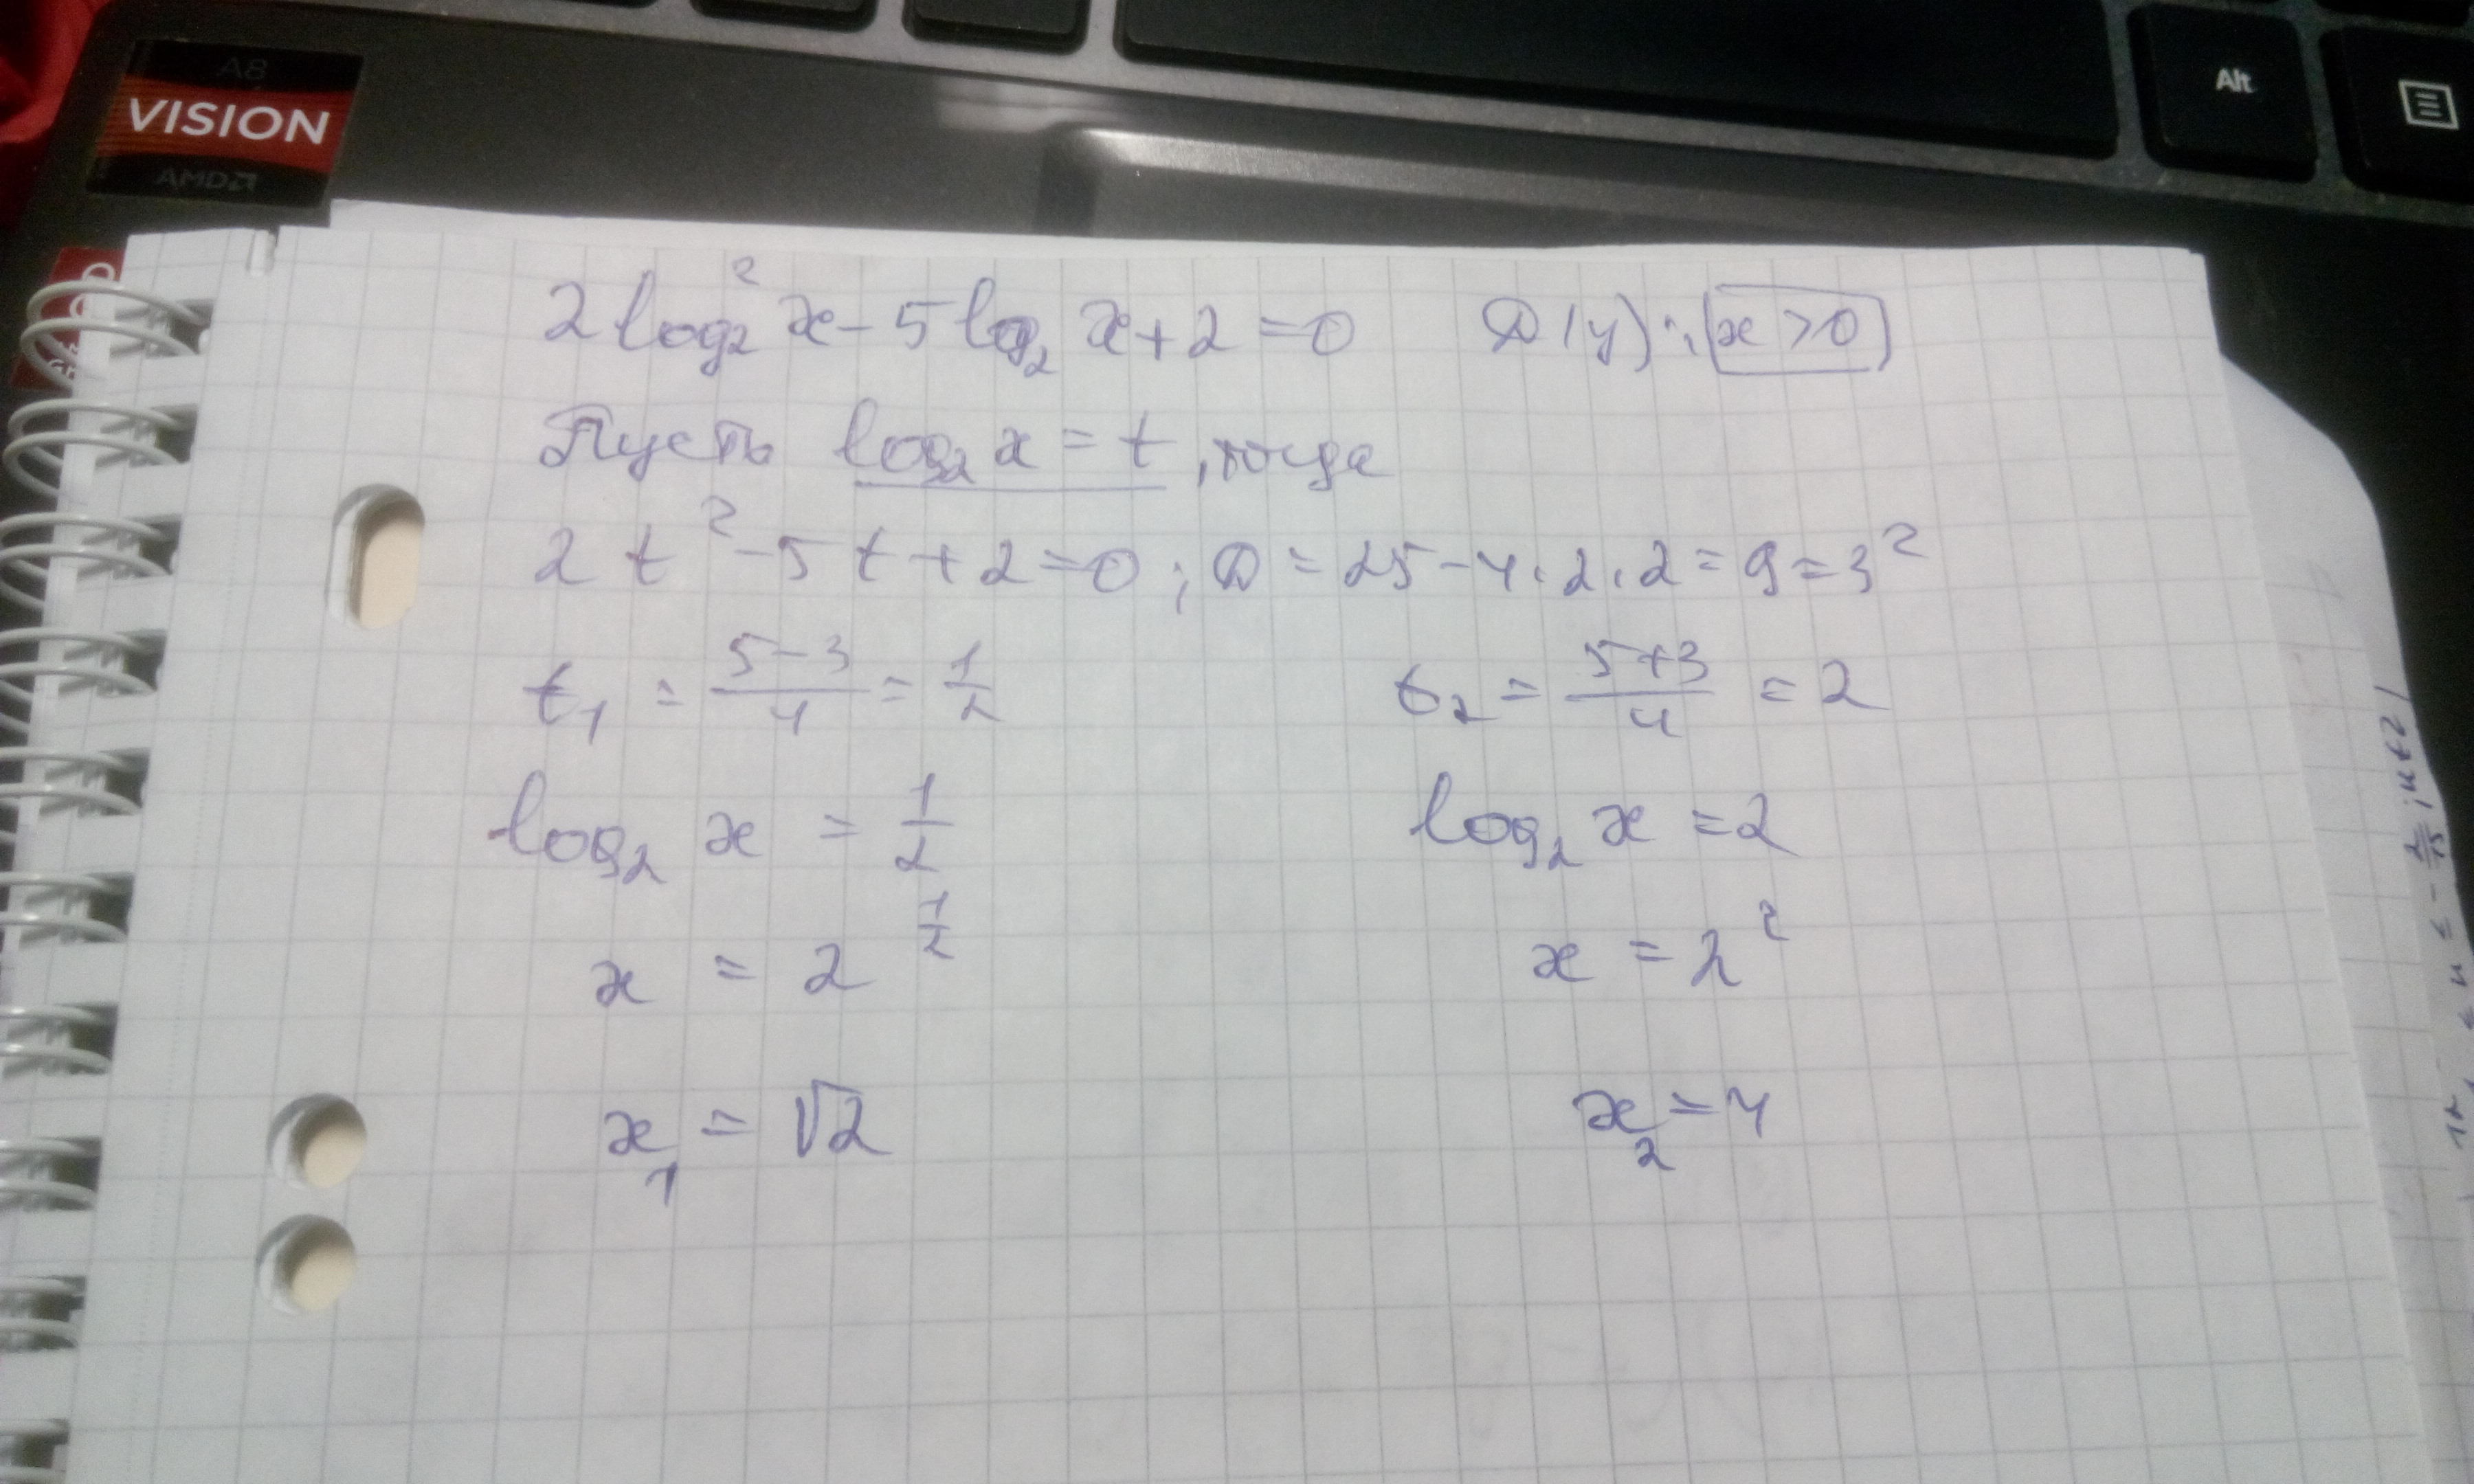 A8
VISION
AMD
Alt
2log₂²x-5log₂x+2=0 D(y): x>0
Пусть log₂x=t, тогда
2t²-5t+2=0; D=25-4·2·2=9=3²
t₁=(5-3)/4=1/2 t₂=(5+3)/4=2
log₂x=1/2 log₂x=2
x=2^(1/2) x=2²
x₁=√2 x₂=4